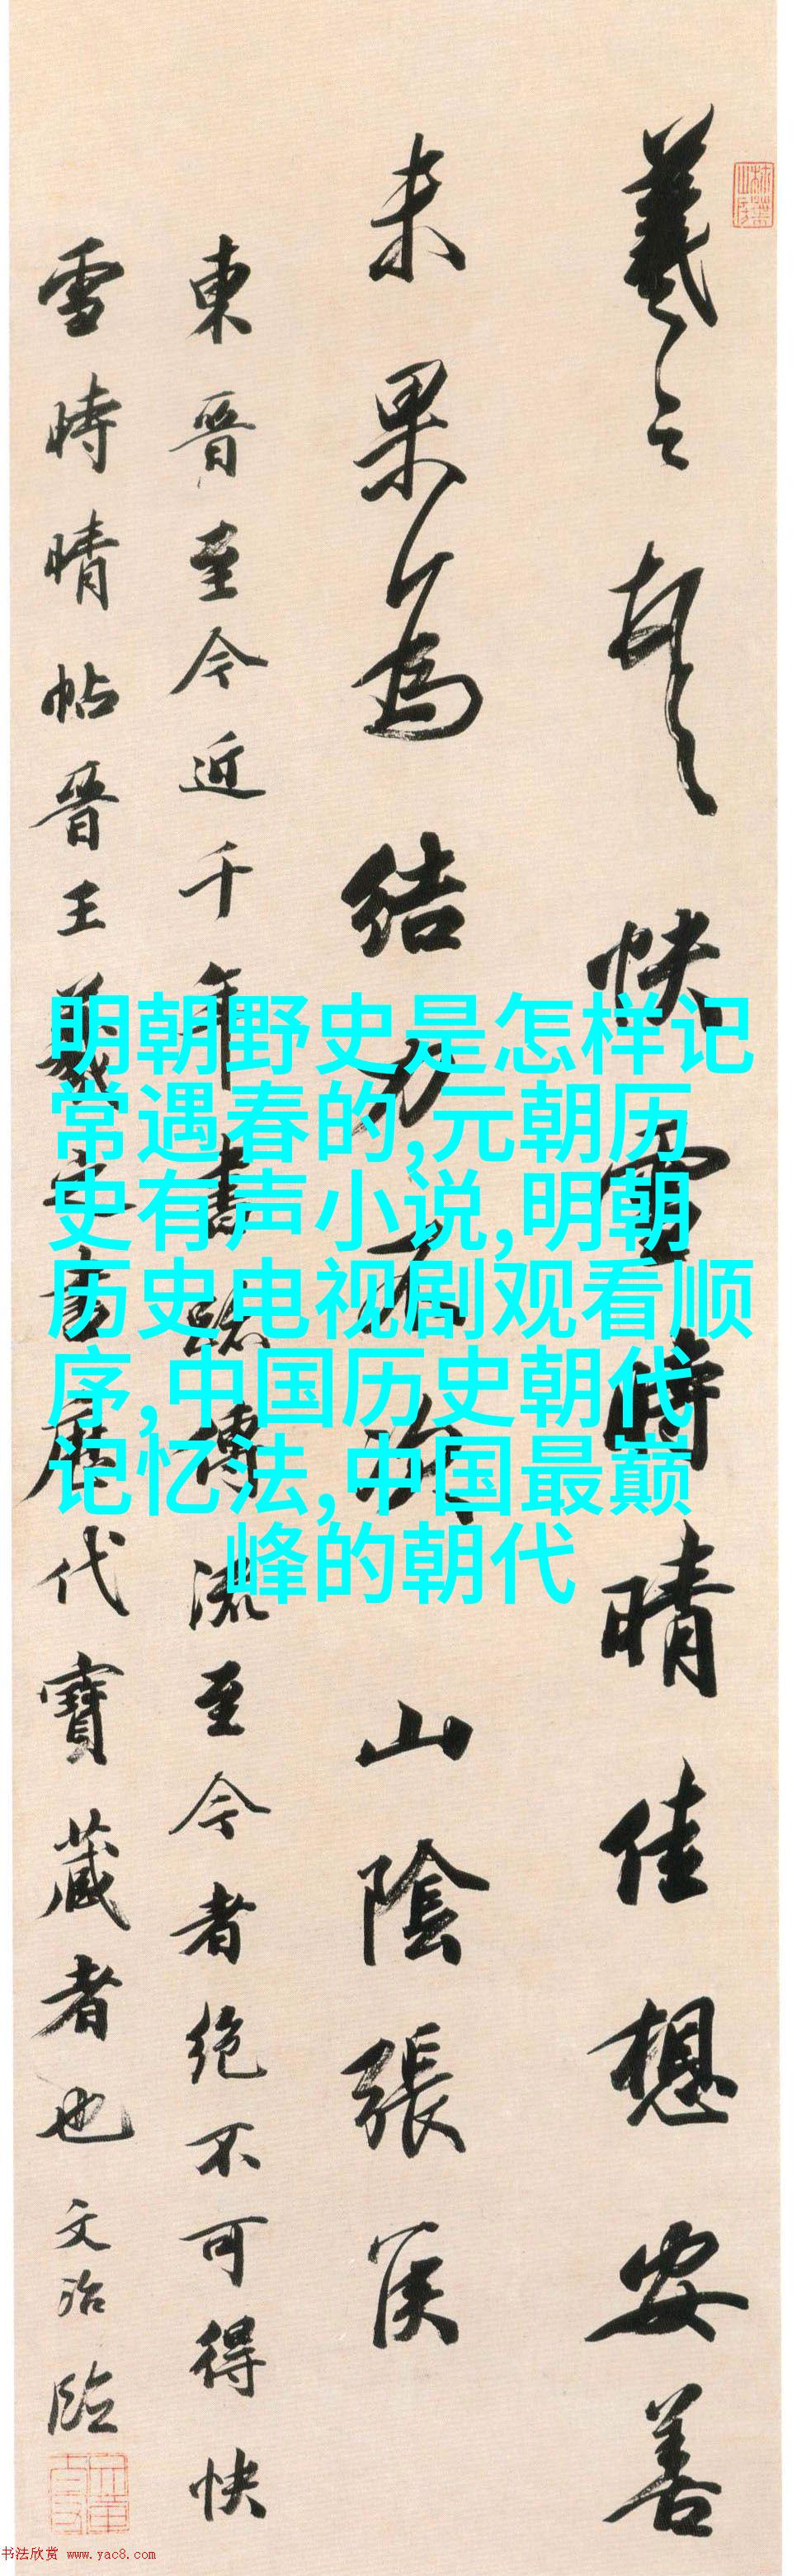 羲之頓首快雪時晴佳想安善
未果為結力不次山陰張侯
東晉至今近千年書跡傳流至今者絕不可得快
雪時晴帖晉王羲之書歷代寶藏者也文治臨
明朝野史是怎样记
常遇春的,元朝历
史有声小说,明朝
历史电视剧观看顺
序,中国历史朝代
记忆法,中国最巅
峰的朝代
书法欣赏 www.yac8.com